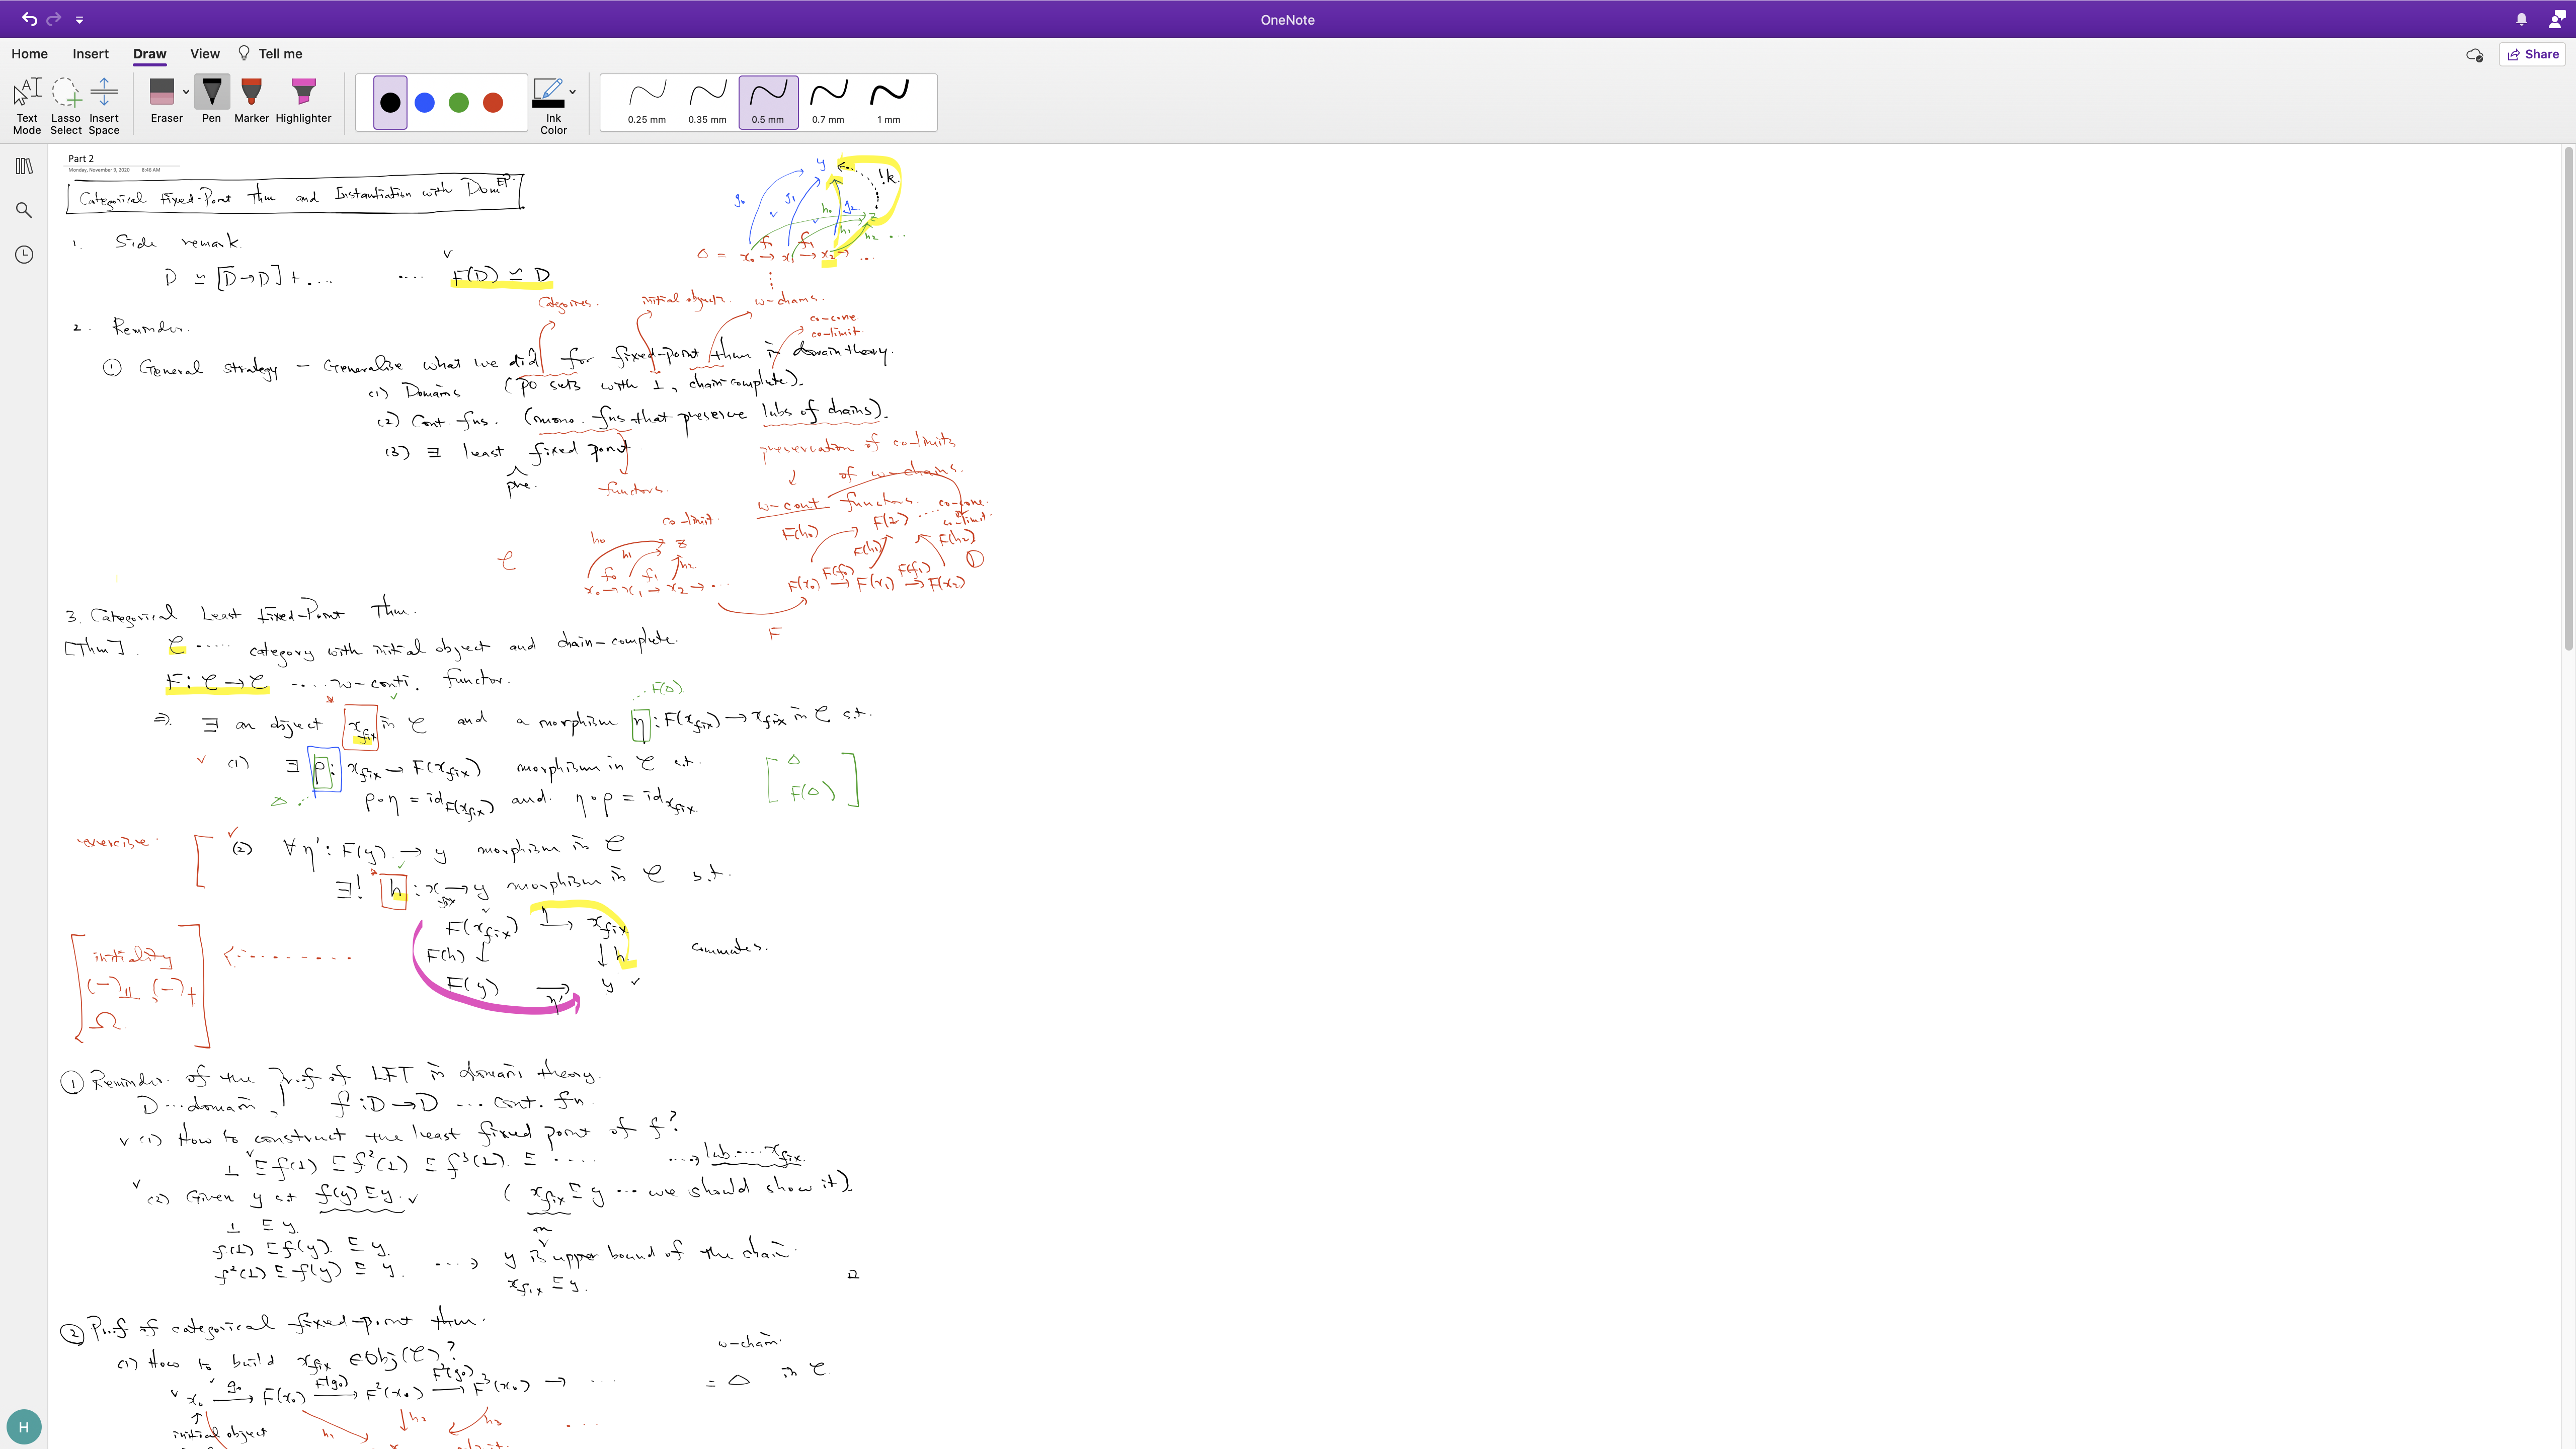 OneNote
Home Insert Draw View Tell me
Share
Text Mode
Lasso Select
Insert Space
Eraser
Pen
Marker
Highlighter
Ink Color
0.25 mm 0.35 mm 0.5 mm 0.7 mm 1 mm
Part 2
Monday, November 9, 2020 8:46 AM
Categorical Fixed-Point Thm and Instantiation with Dom^EP.
y
!k
g₀ g₁ g₂
h₀ h₁ h₂ ...
z
f₀ f₁
Δ = x₀ → x₁ → x₂ → ...
1. Side remark.
D ≃ [D→D] + .... .... F(D) ≃ D
Categories. initial object. ω-chains.
co-cone
co-limit.
2. Reminder.
① General strategy — Generalise what we did for fixed-point thm in domain theory.
(1) Domains (po sets with ⊥, chain complete).
(2) Cont. fns. (mono. fns that preserve lubs of chains).
(3) ∃ least fixed point
pre.
functors.
preservation of co-limits
of ω-chains.
ω-cont functors.
co-cone.
co-limit.
co-limit.
C
h₀ h₁ h₂ z
f₀ f₁
x₀ → x₁ → x₂ → ...
F(h₀) F(z) ....
F(h₁) F(h₂) ①
F(f₀) F(f₁)
F(x₀) → F(x₁) → F(x₂)
F
3. Categorical Least Fixed-Point Thm.
[Thm]. C ..... category with initial object and chain-complete.
F: C→C .... ω-conti. functor.
F(Δ)
⇒. ∃ an object x_fix in C and a morphism η: F(x_fix) → x_fix in C s.t.
(1) ∃ ρ: x_fix → F(x_fix) morphism in C s.t.
Δ
ρ∘η = id_F(x_fix) and. η∘ρ = id_x_fix.
[Δ
F(Δ)]
exercise.
(2) ∀η': F(y) → y morphism in C
∃! h: x_fix → y morphism in C s.t.
F(x_fix) →η x_fix
F(h) ↓ ↓ h
F(y) →η' y
commutes.
initiality
(−)⊥⊥, (−)+
Ω
① Reminder of the Proof of LFT in domain theory.
D ... domain, f: D→D ... cont. fn.
(1) How to construct the least fixed point of f?
⊥ ⊑ f(⊥) ⊑ f²(⊥) ⊑ f³(⊥). ⊑ ..... ...→ lub .... x_fix.
(2) Given y s.t f(y) ⊑ y. (x_fix ⊑ y ... we should show it).
⊥ ⊑ y.
f(⊥) ⊑ f(y). ⊑ y.
f²(⊥) ⊑ f(y) ⊑ y. ...→ y is upper bound of the chain.
x_fix ⊑ y.
② Proof of categorical fixed-point thm.
(1) How to build x_fix ∈ Obj(C)?
ω-chain.
x₀ →g₀ F(x₀) →F(g₀) F²(x₀) →F²(g₀) F³(x₀) → ... = Δ in C.
initial object
h₁ h₂ h₃
H